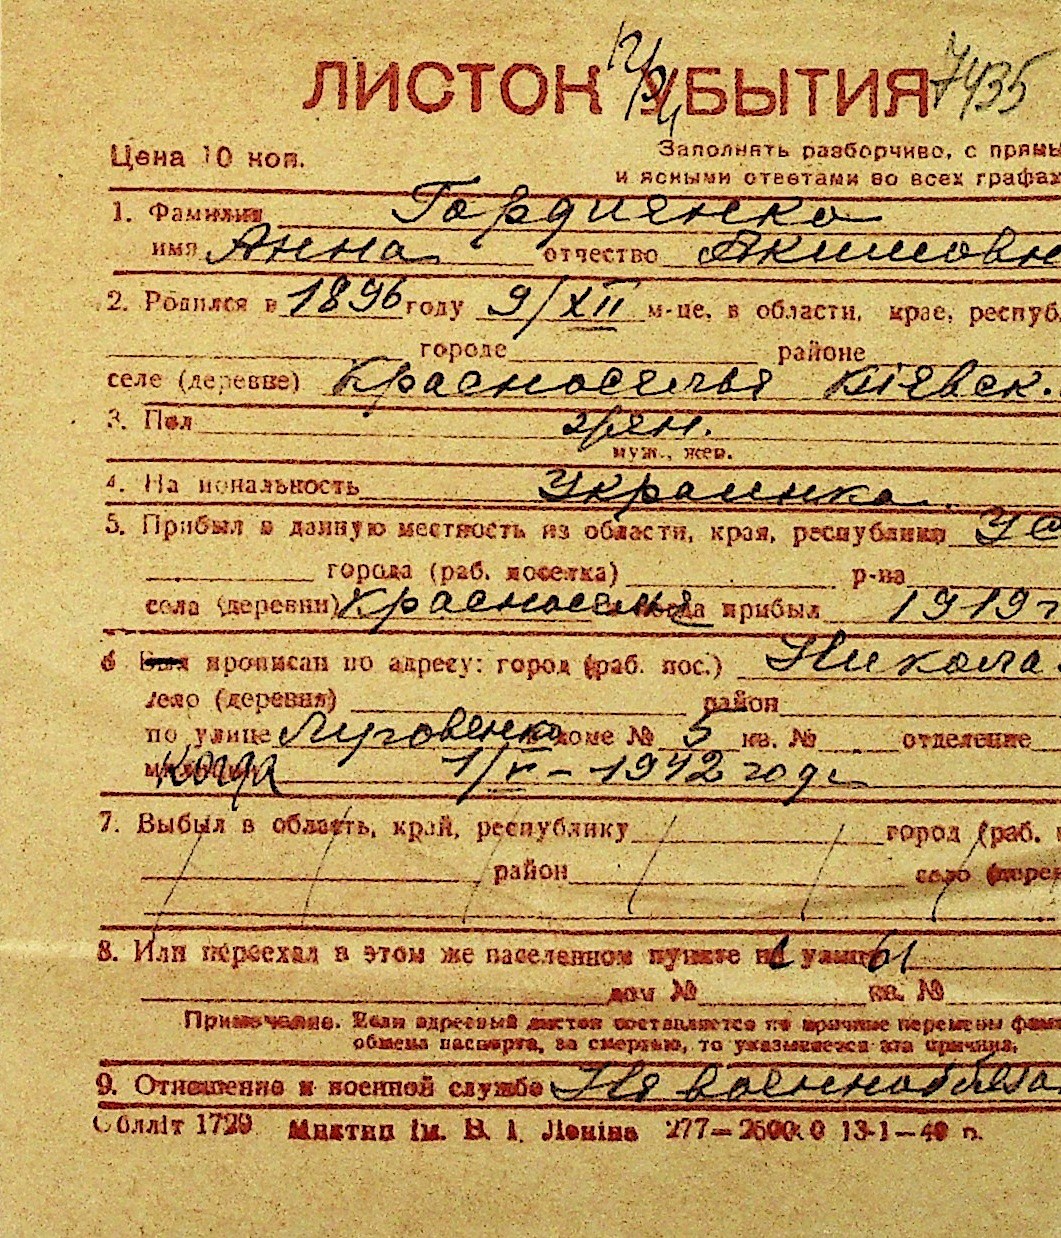 ЛИСТОК УБЫТИЯ 7435
Цена 10 коп.
Заполнять разборчиво, с прямы
и ясными ответами во всех графах
1. Фамилия Гордиенко
имя Анна отчество Акимовн
2. Родился в 1896 году 9/XII м-це, в области, крае, респуб.
городе районе
селе (деревне) Красноселья Киевск.
3. Пол жен.
муж., жен.
4. Национальность Украинка
5. Прибыл в данную местность из области, края, республики УС
города (раб. поселка) р-на
села (деревни) Красноселья когда прибыл 1919 г
6 Был прописан по адресу: город (раб. пос.) Никола
село (деревня) район
по улице доме № 5 кв. № отделение
когда 1/V – 1942 года
7. Выбыл в область, край, республику город (раб.
район село (дерев
8. Или переехал в этом же населенном пункте на улицу
дом № кв. №
Примечание. Если адресный листок составляется по причине перемены фам
обмена паспорта, за смертью, то указывается эта причина.
9. Отношение к военной службе Не военнообяза
Облліт 1729 Миктип ім. В. І. Леніна 13-1-40 р.